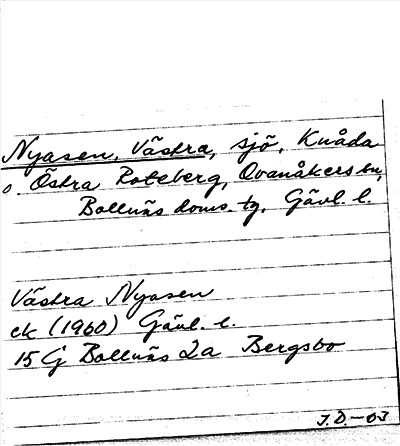 Nyasen, Västra, sjö, Knåda
o. Östra Roteberg, Ovanåkers sn,
Bollnäs doms. tg, Gävl. l.
Västra Nyasen
ek (1960) Gävl. l.
15 G Bollnäs 2a Bergsbo
J.D.-03